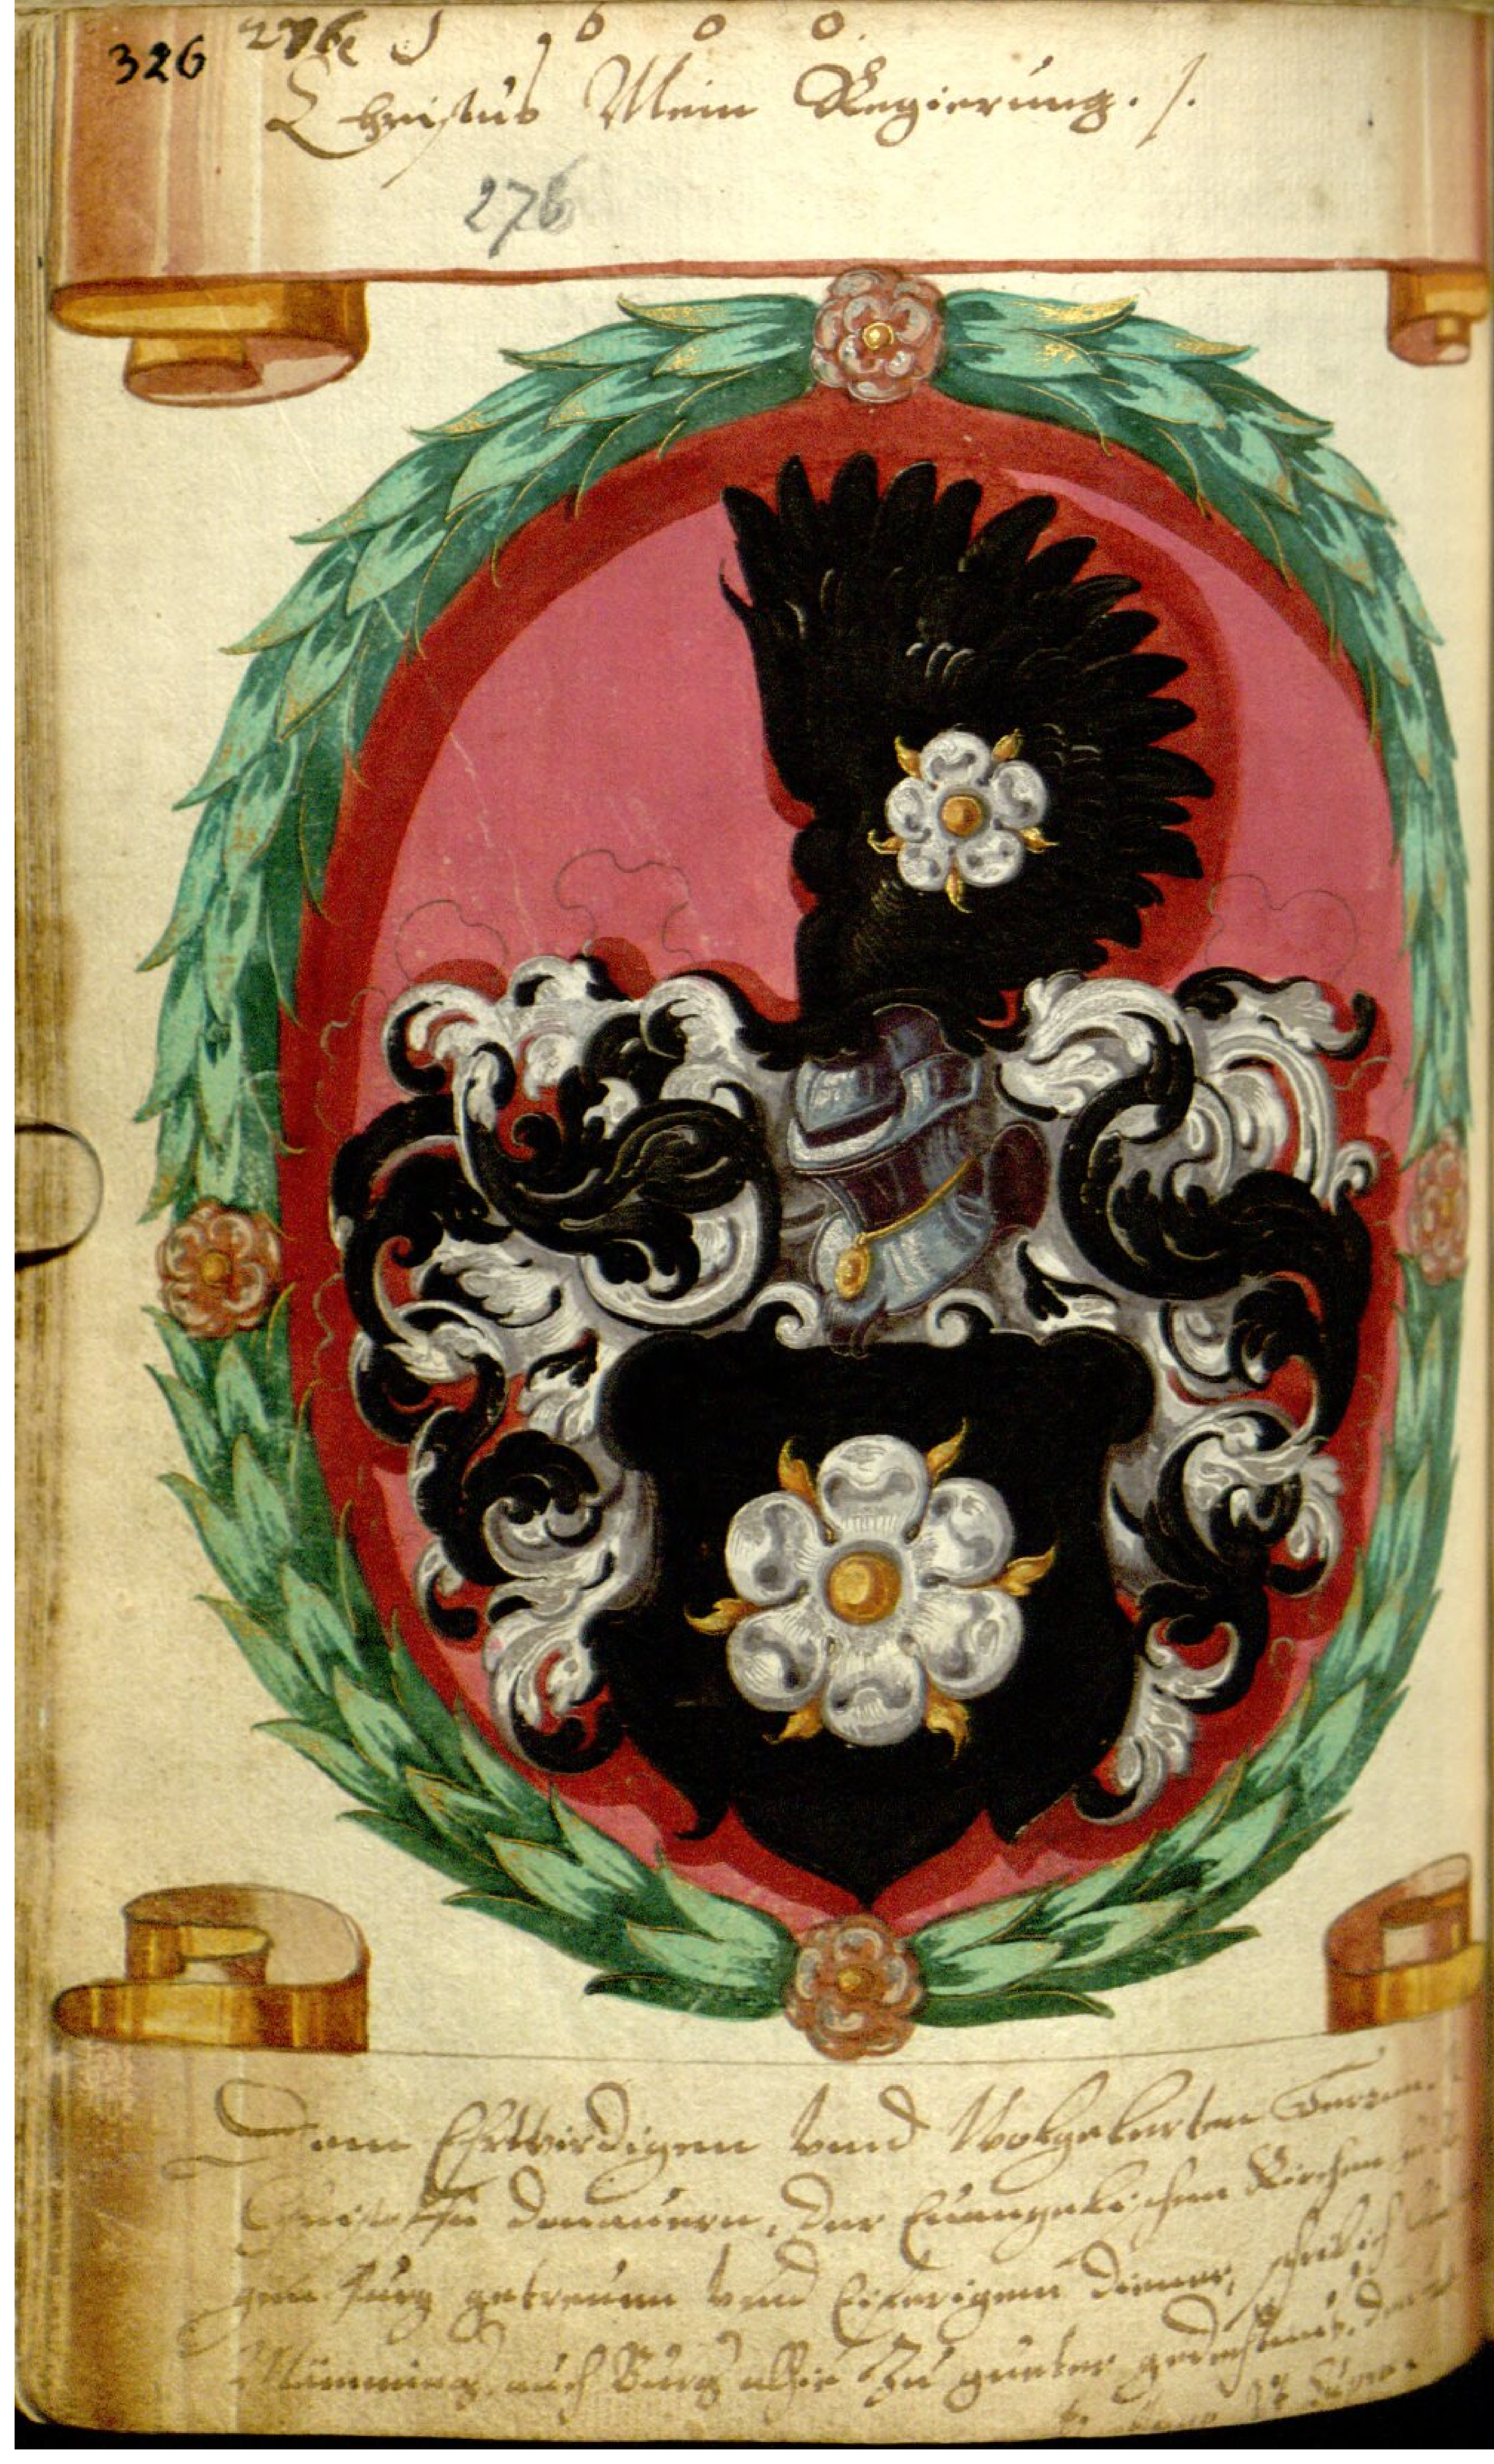 326 276 1 6 0 0.
Christus Mein Regierung. /.
276
Dem Ehrwirdigen vnnd Wolgelerten Herrn
Christoffen Donauern, der Euangelischen Kirchen
getreuen vnd Eiferigem Diener, schrib ich
auch Burg alhie Zu gueter gedechtnus. den